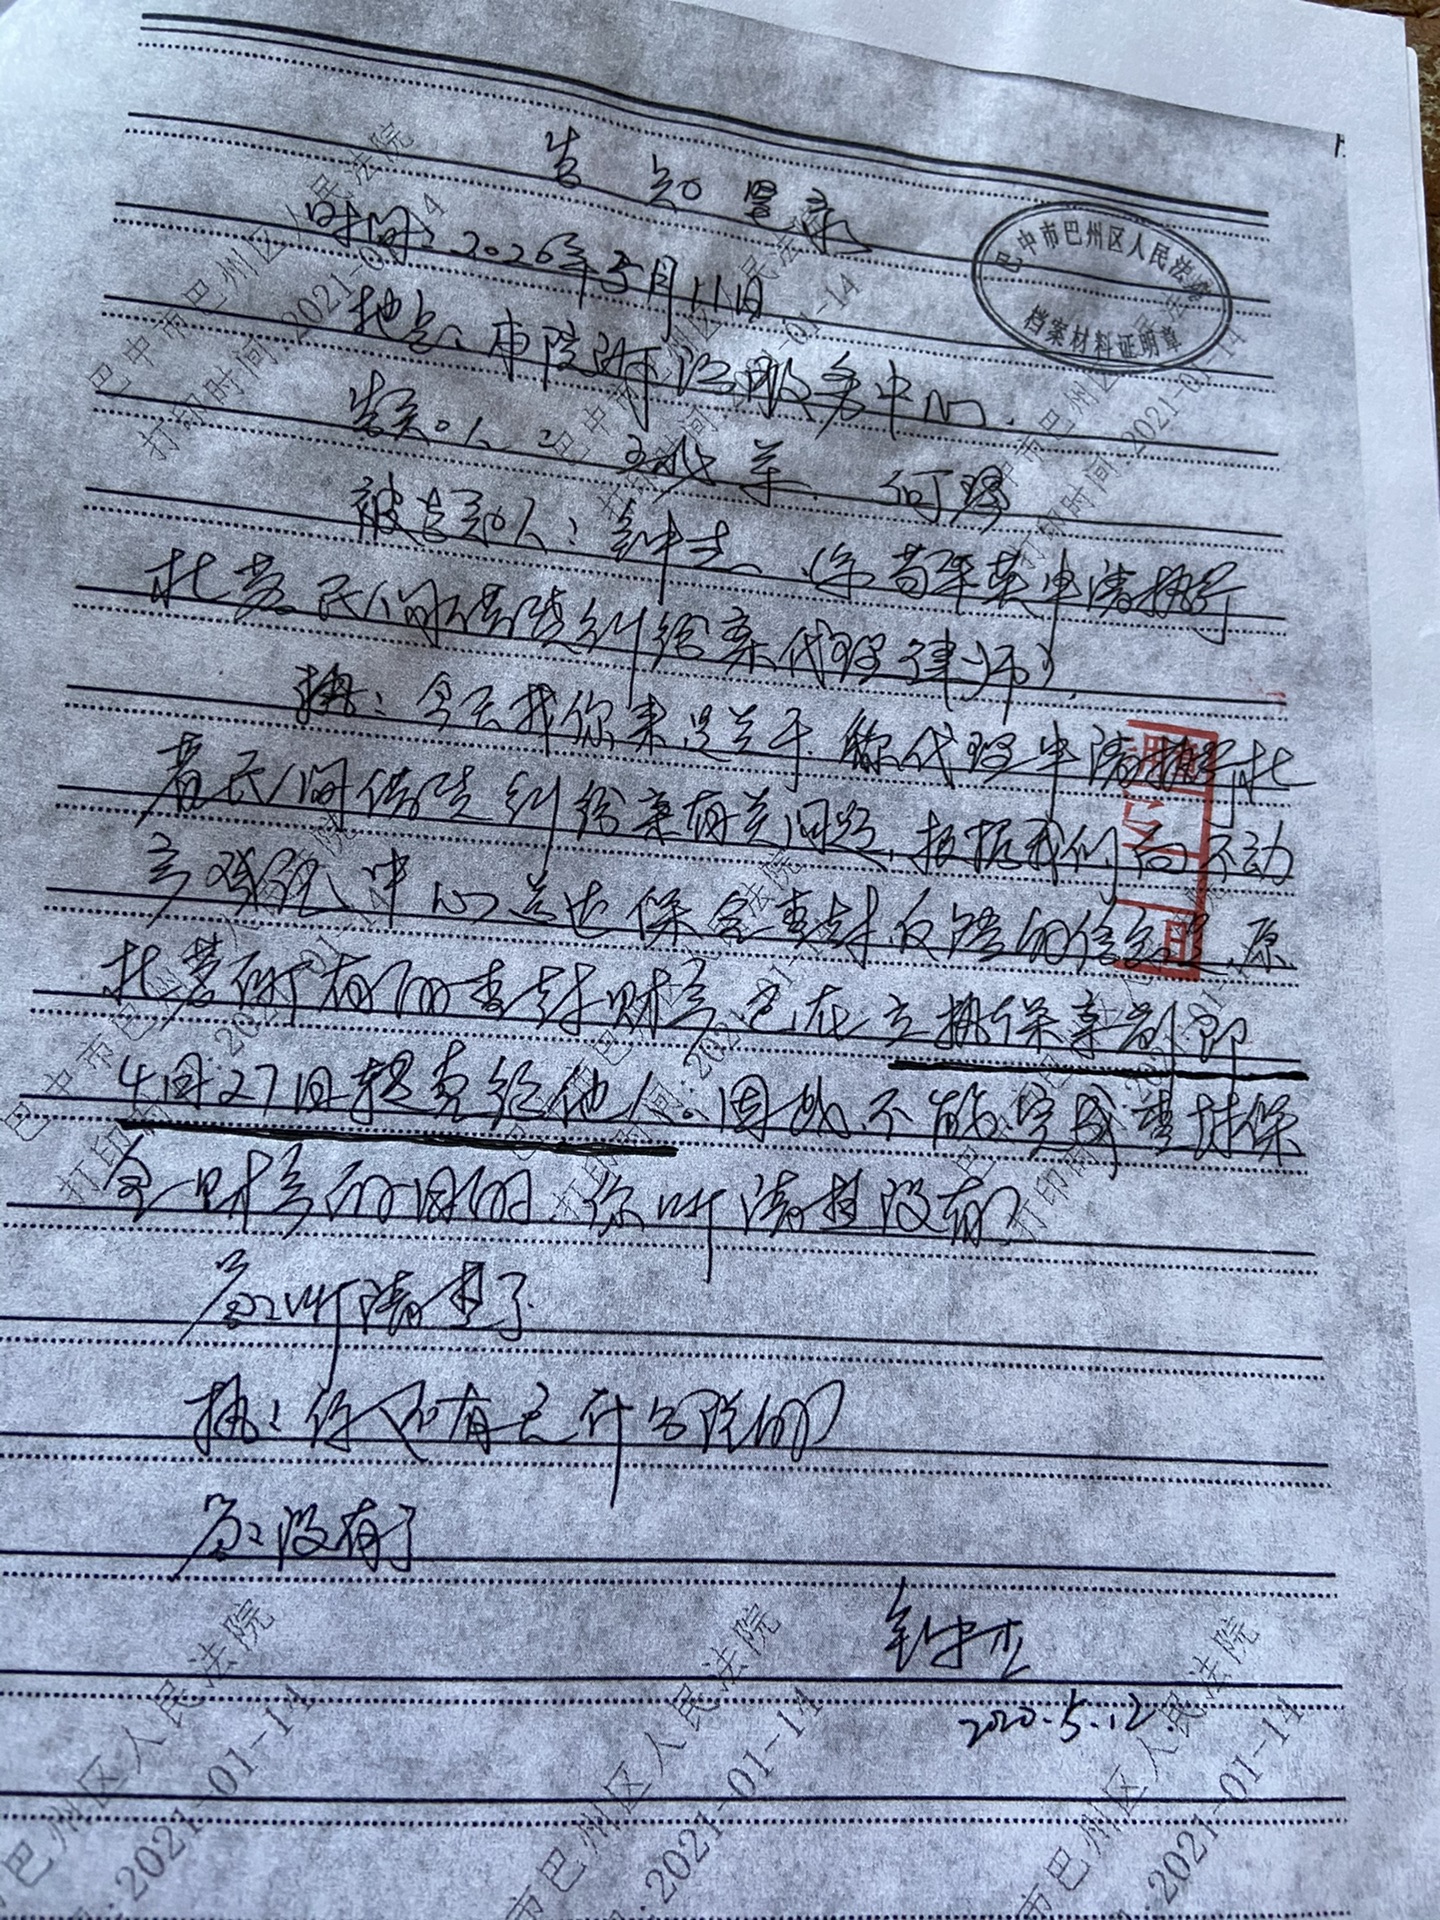 告知笔录
时间：2020年5月11日
地点：本院诉讼服务中心.
告知人：
何
被告知人：（系 申请执行
民间借贷纠纷案代理律师）
执：今天找你来是关于你代理申请执行杜
民间借贷纠纷案有关问题，根据我们向不动
产登记中心送达保全查封反馈的信息，原
杜 所有的查封财产已在立执保案前即
4月27日 给他人。因此不能完成查封保
全财产的目的，你听清楚没有？
听清楚了
执：你还有无什么说的？
没有了
2020.5.12
巴中市巴州区人民法院
档案材料证明章
巴中市巴州区人民法院
打印时间：2021-01-14